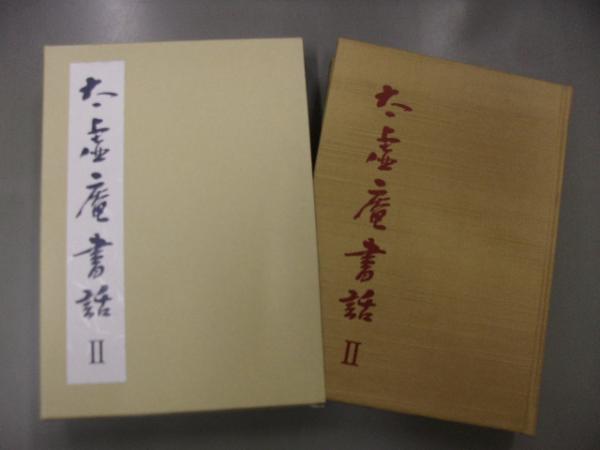 太虚庵書話 II
太虚庵書話 II